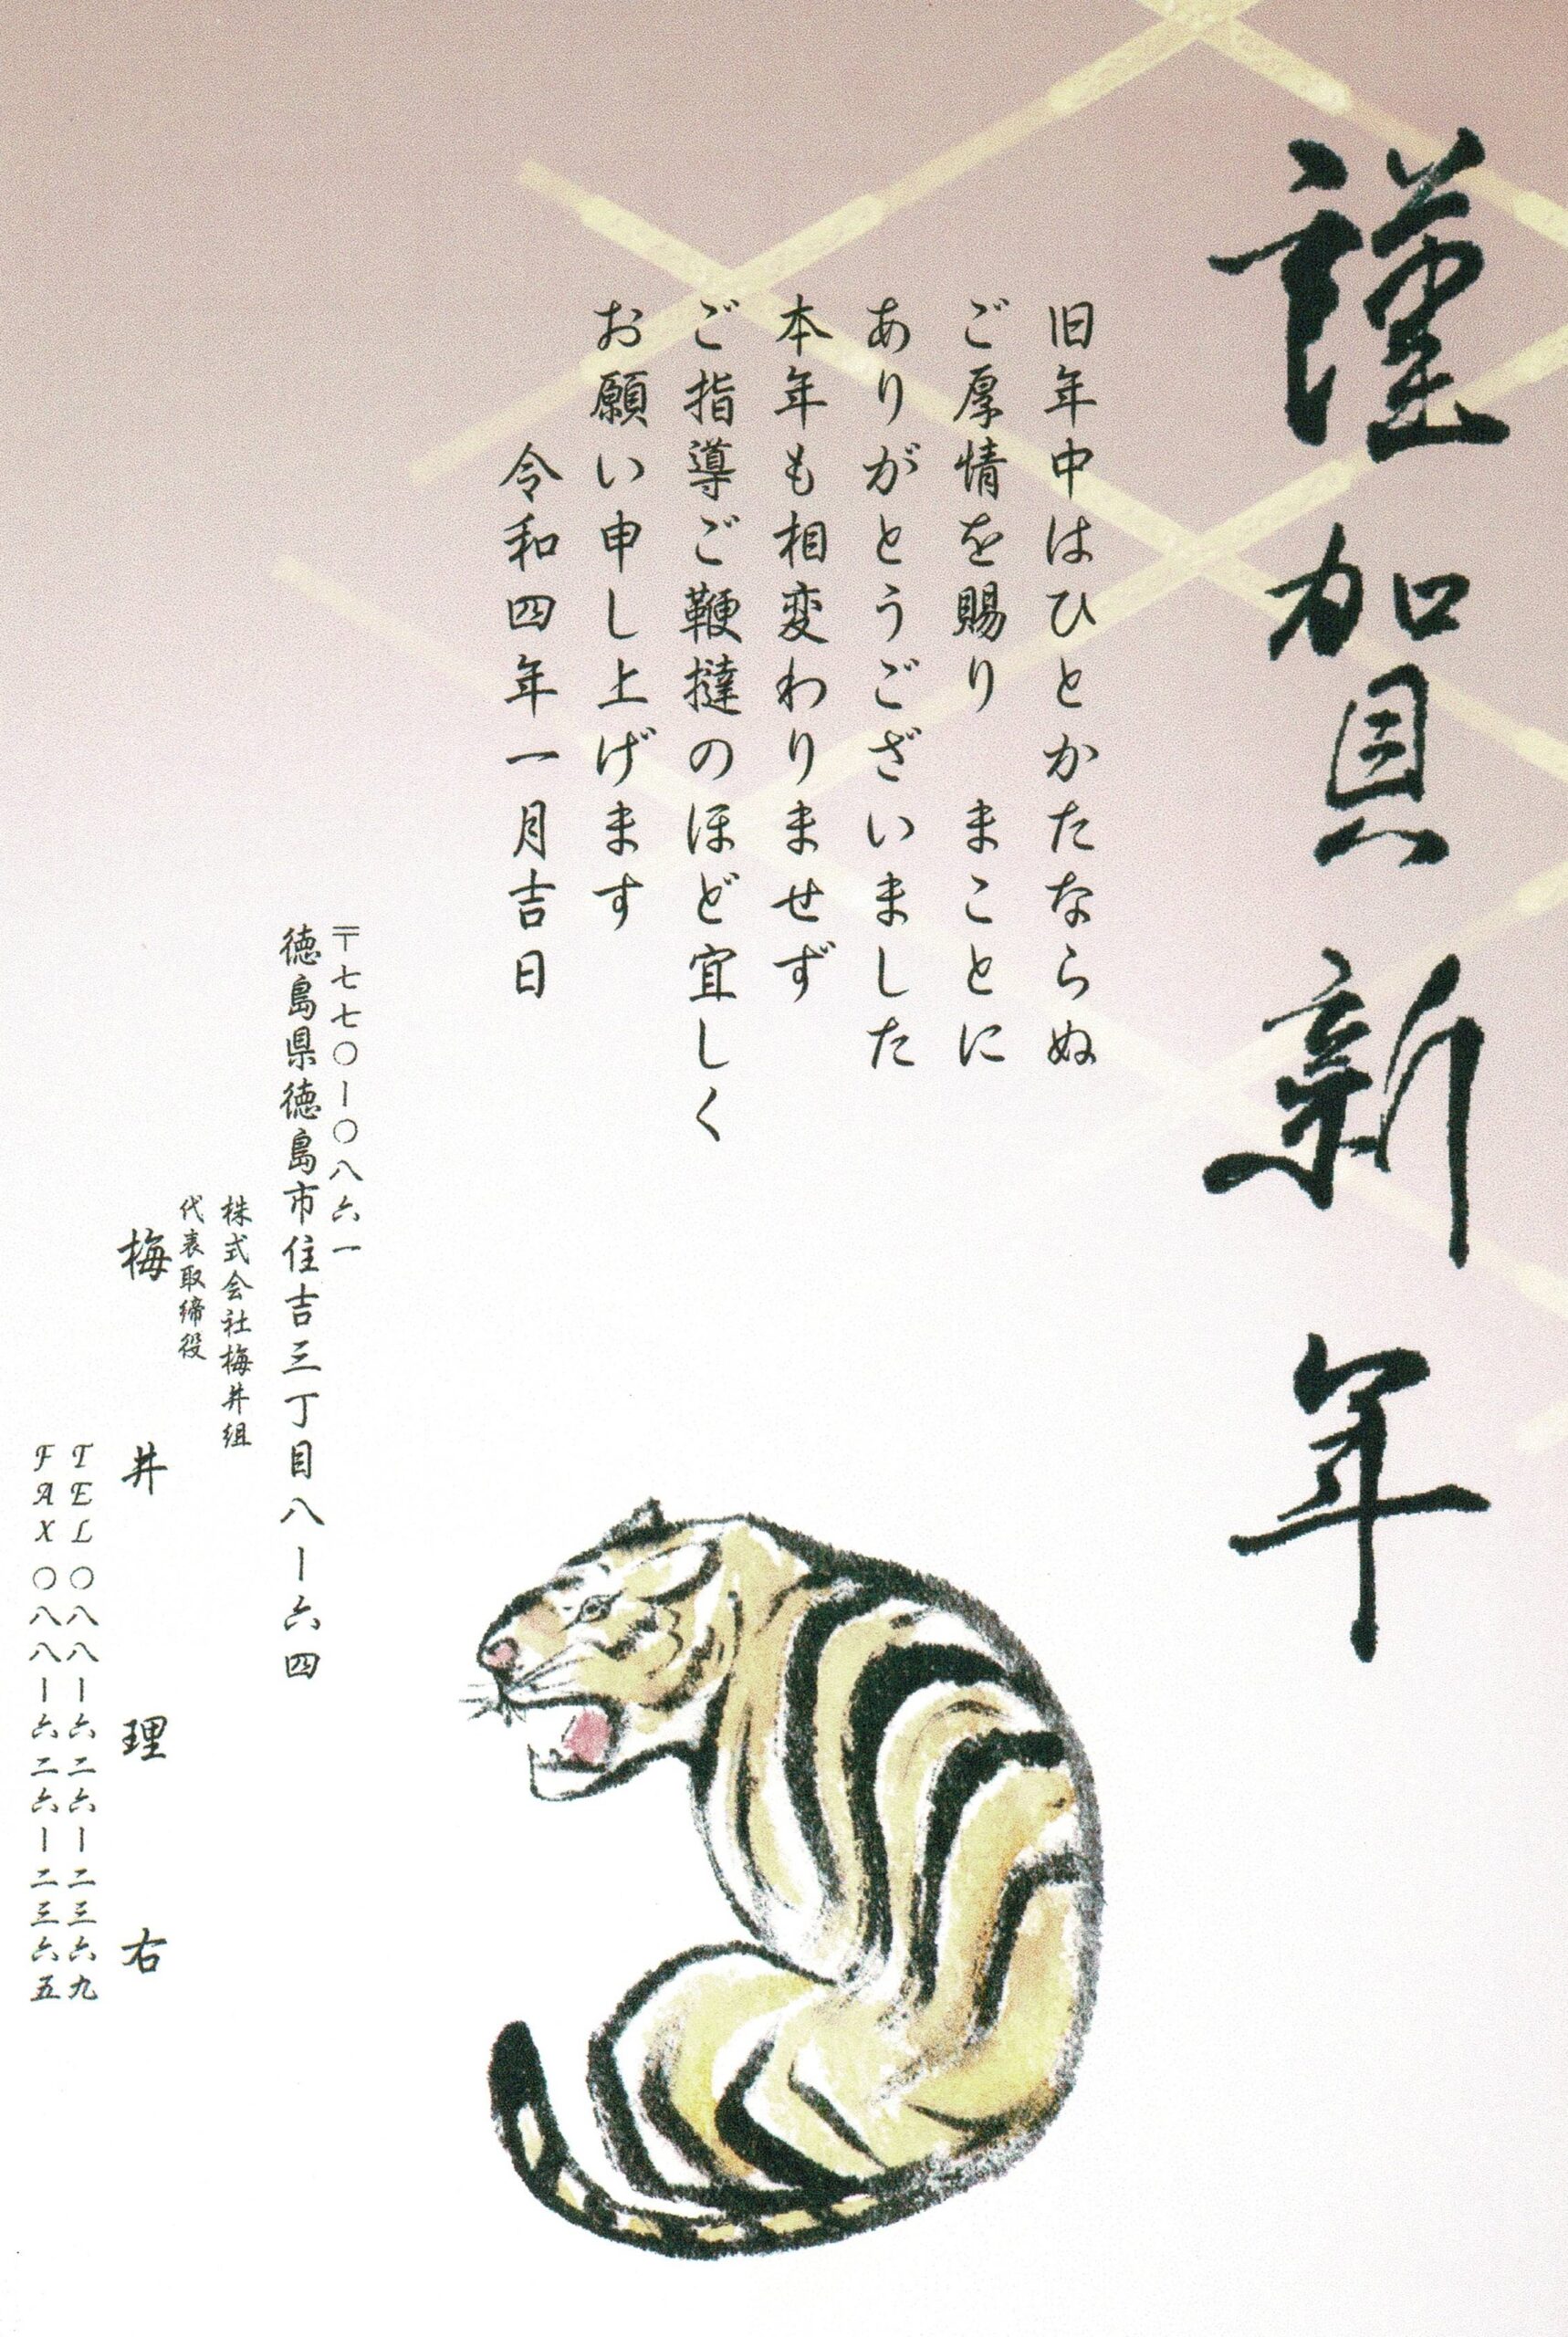 謹賀新年
旧年中はひとかたならぬ
ご厚情を賜り　まことに
ありがとうございました
本年も相変わりませず
ご指導ご鞭撻のほど宜しく
お願い申し上げます
令和四年一月吉日
〒七七〇ー〇八六一
徳島県徳島市住吉三丁目八ー六四
株式会社梅井組
代表取締役
梅井理右
TEL〇八八ー六二六ー二三六九
FAX〇八八ー六二六ー二三六五